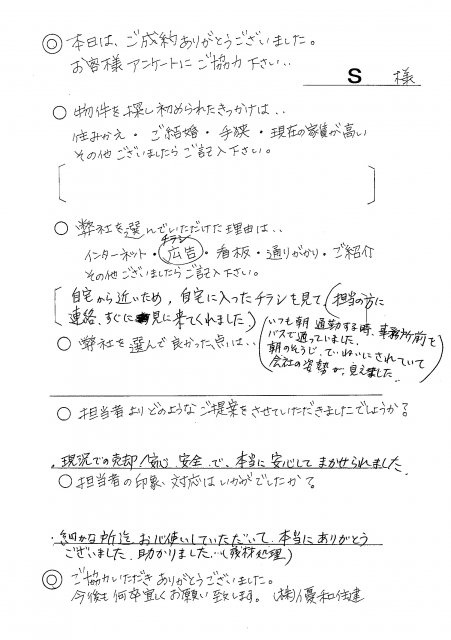 ◎ 本日は、ご成約ありがとうございました。
お客様アンケートにご協力下さい‥
S 様
○ 物件を探し初められたきっかけは‥
住みかえ・ご結婚・手狭・現在の家賃が高い
その他ございましたらご記入下さい。
○ 弊社を選んでいただけた理由は‥
チラシ
インターネット・広告・看板・通りがかり・ご紹介
その他ございましたらご記入下さい。
自宅から近いため，自宅に入ったチラシを見て，担当の方に
連絡、すぐに見に来てくれました。
いつも朝 通勤する時、事務所前を
バスで通っていました。
朝のそうじ、ていねいにされていて
会社の姿勢が、見えました。
○ 弊社を選んで良かった点は‥
○ 担当者よりどのようなご提案をさせていただきましたでしょうか？
・現況での売却！安心、安全、で、本当に安心してまかせられました。
○ 担当者の印象・対応はいかがでしたか？
・細かな所迄お心使いしていただいて、本当にありがとう
ございました、助かりました…(残材処理)
◎ ご協力いただきありがとうございました。
今後も何卒宜しくお願い致します。(株)優和住建